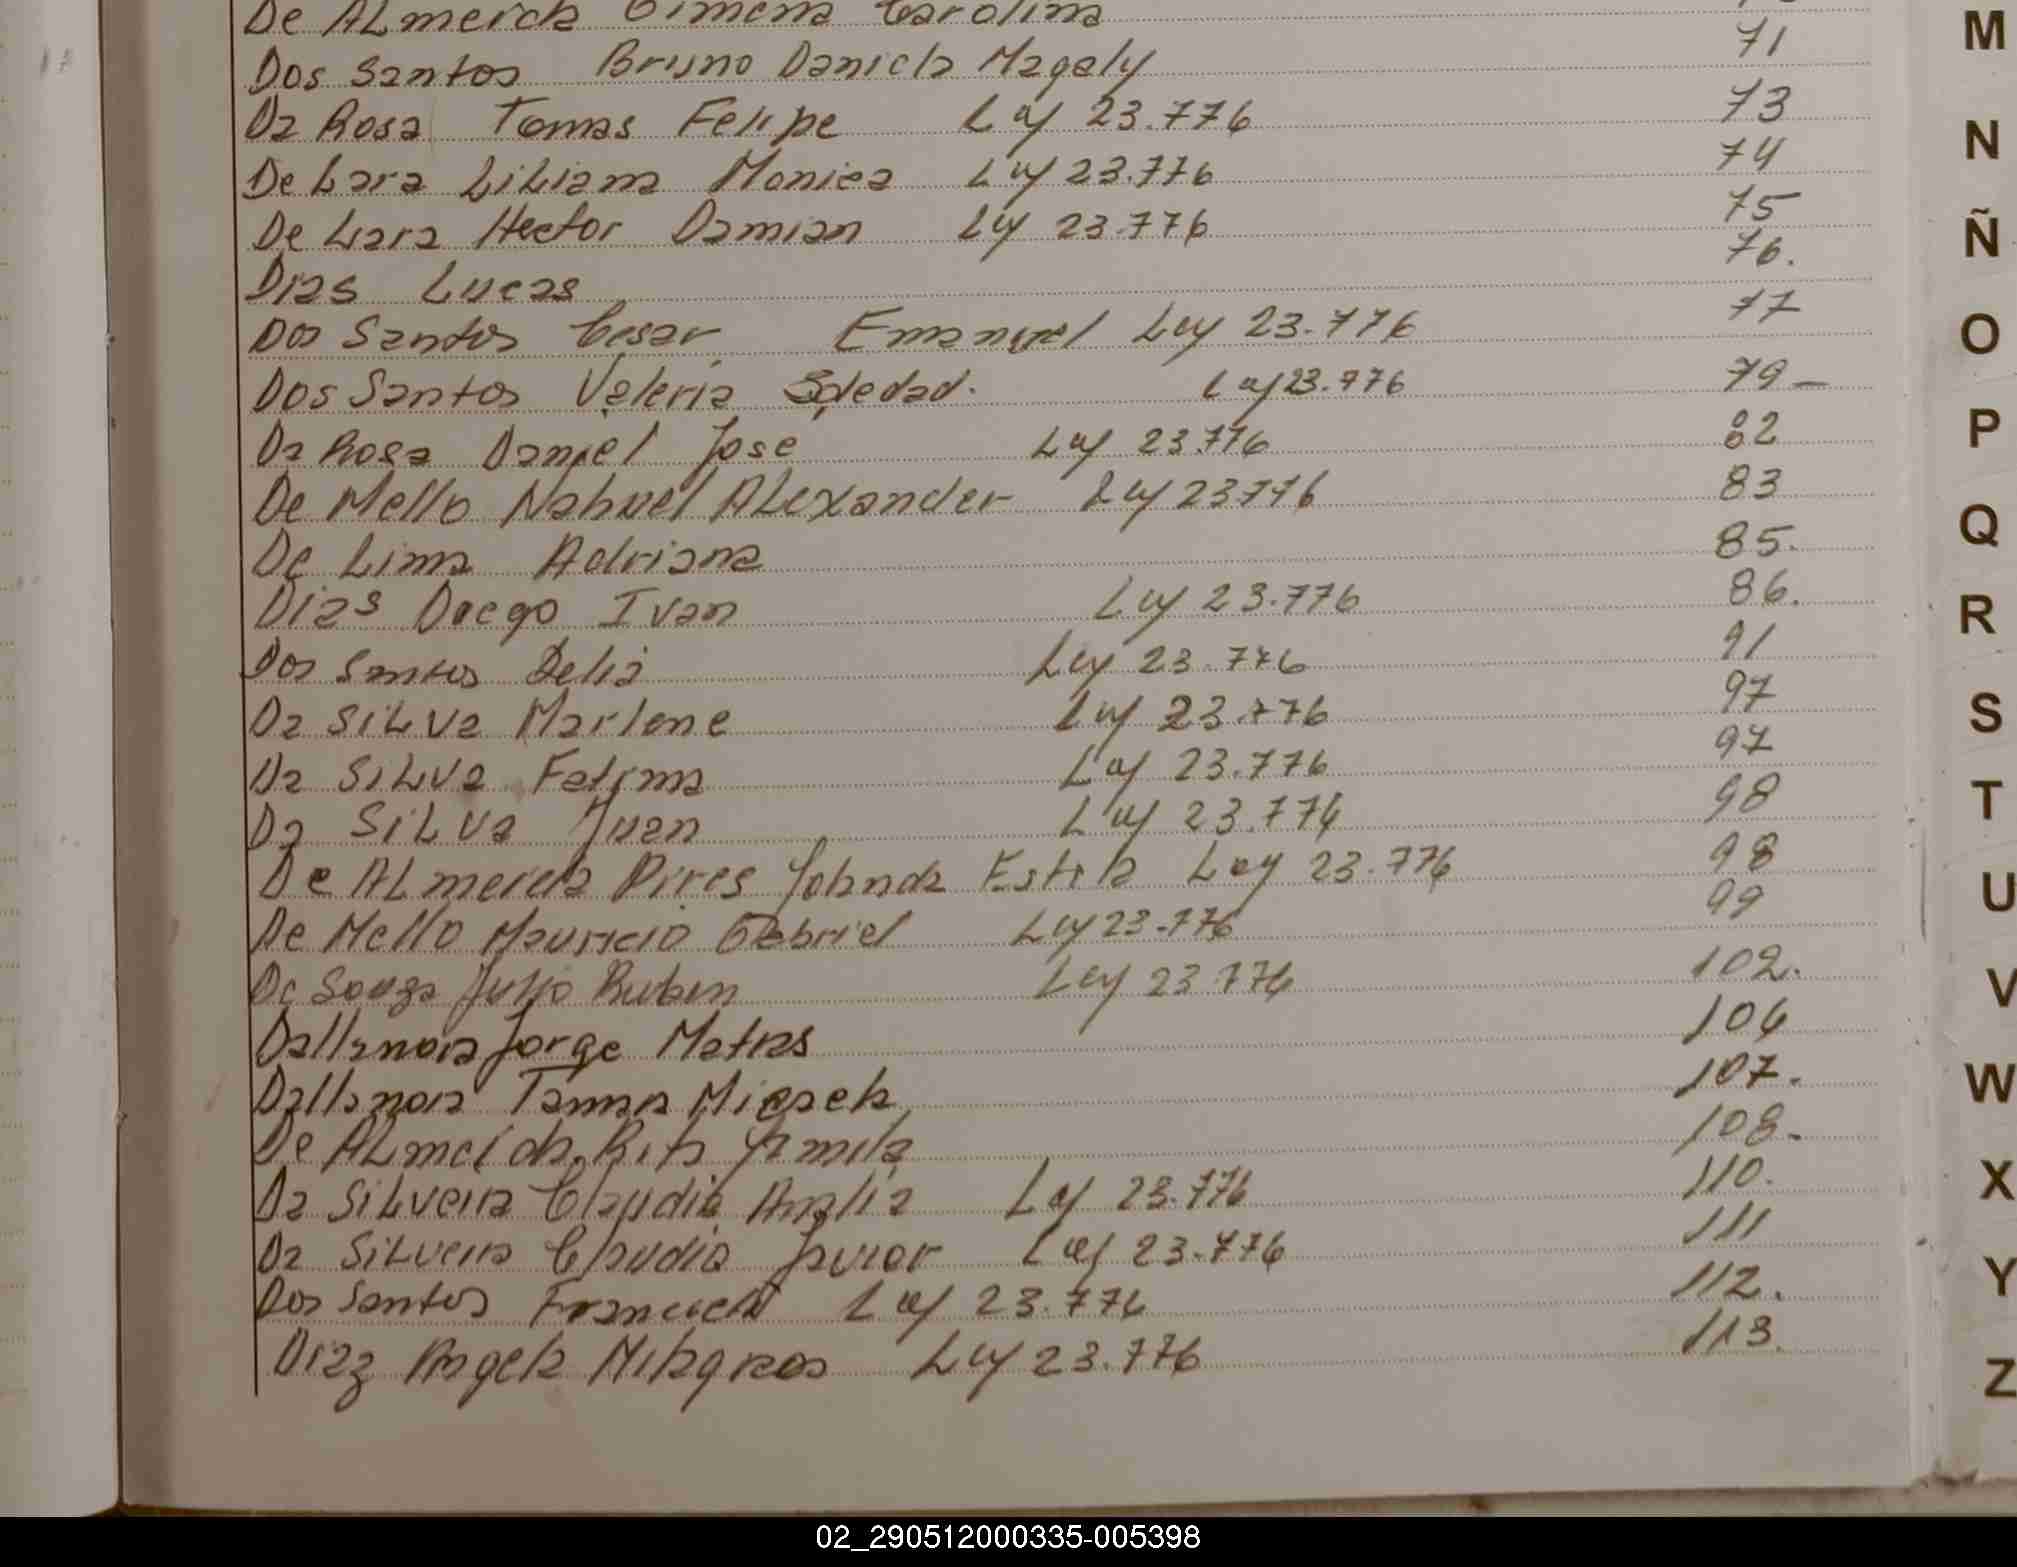 De ALmeida Gimena Carolina
Dos Santos Bruno Daniela Magaly 71
Da Rosa Tomas Felipe Ley 23.776 73
De Lara Liliana Monica Ley 23.776 74
De Lara Hector Damian Ley 23.776 75
Dias Lucas 76.
Dos Santos Cesar Emanuel Ley 23.776 77
Dos Santos Valeria Soledad. Ley 23.776 79-
Da Rosa Daniel Jose Ley 23.776 82
De Mello Nahuel ALexander Ley 23776 83
De Lima Adriana 85.
Dias Diego Ivan Ley 23.776 86.
Dos Santos Delia Ley 23.776 91
Da SiLva Marlene Ley 23.776 97
Da SiLva Fatima Ley 23.776 97
Da SiLva Juan Ley 23.776 98
De ALmeida Pires Yolanda Estela Ley 23.776 98
De Mello Mauricio Gabriel Ley 23.776 99
De Souza Julio Ruben Ley 23.776 102.
Dallanora Jorge Matias 106
Dallanora Tamara Micaela 107.
De ALmeida Rita Yamila 108.
Da SiLveira Claudia Analia Ley 23.776 110.
Da SiLveira Claudio Javier Ley 23.776 111
Dos Santos Ley 23.776 112.
Diaz Angela Milagros Ley 23.776 113.
M
N
Ñ
O
P
Q
R
S
T
U
V
W
X
Y
Z
02_290512000335-005398